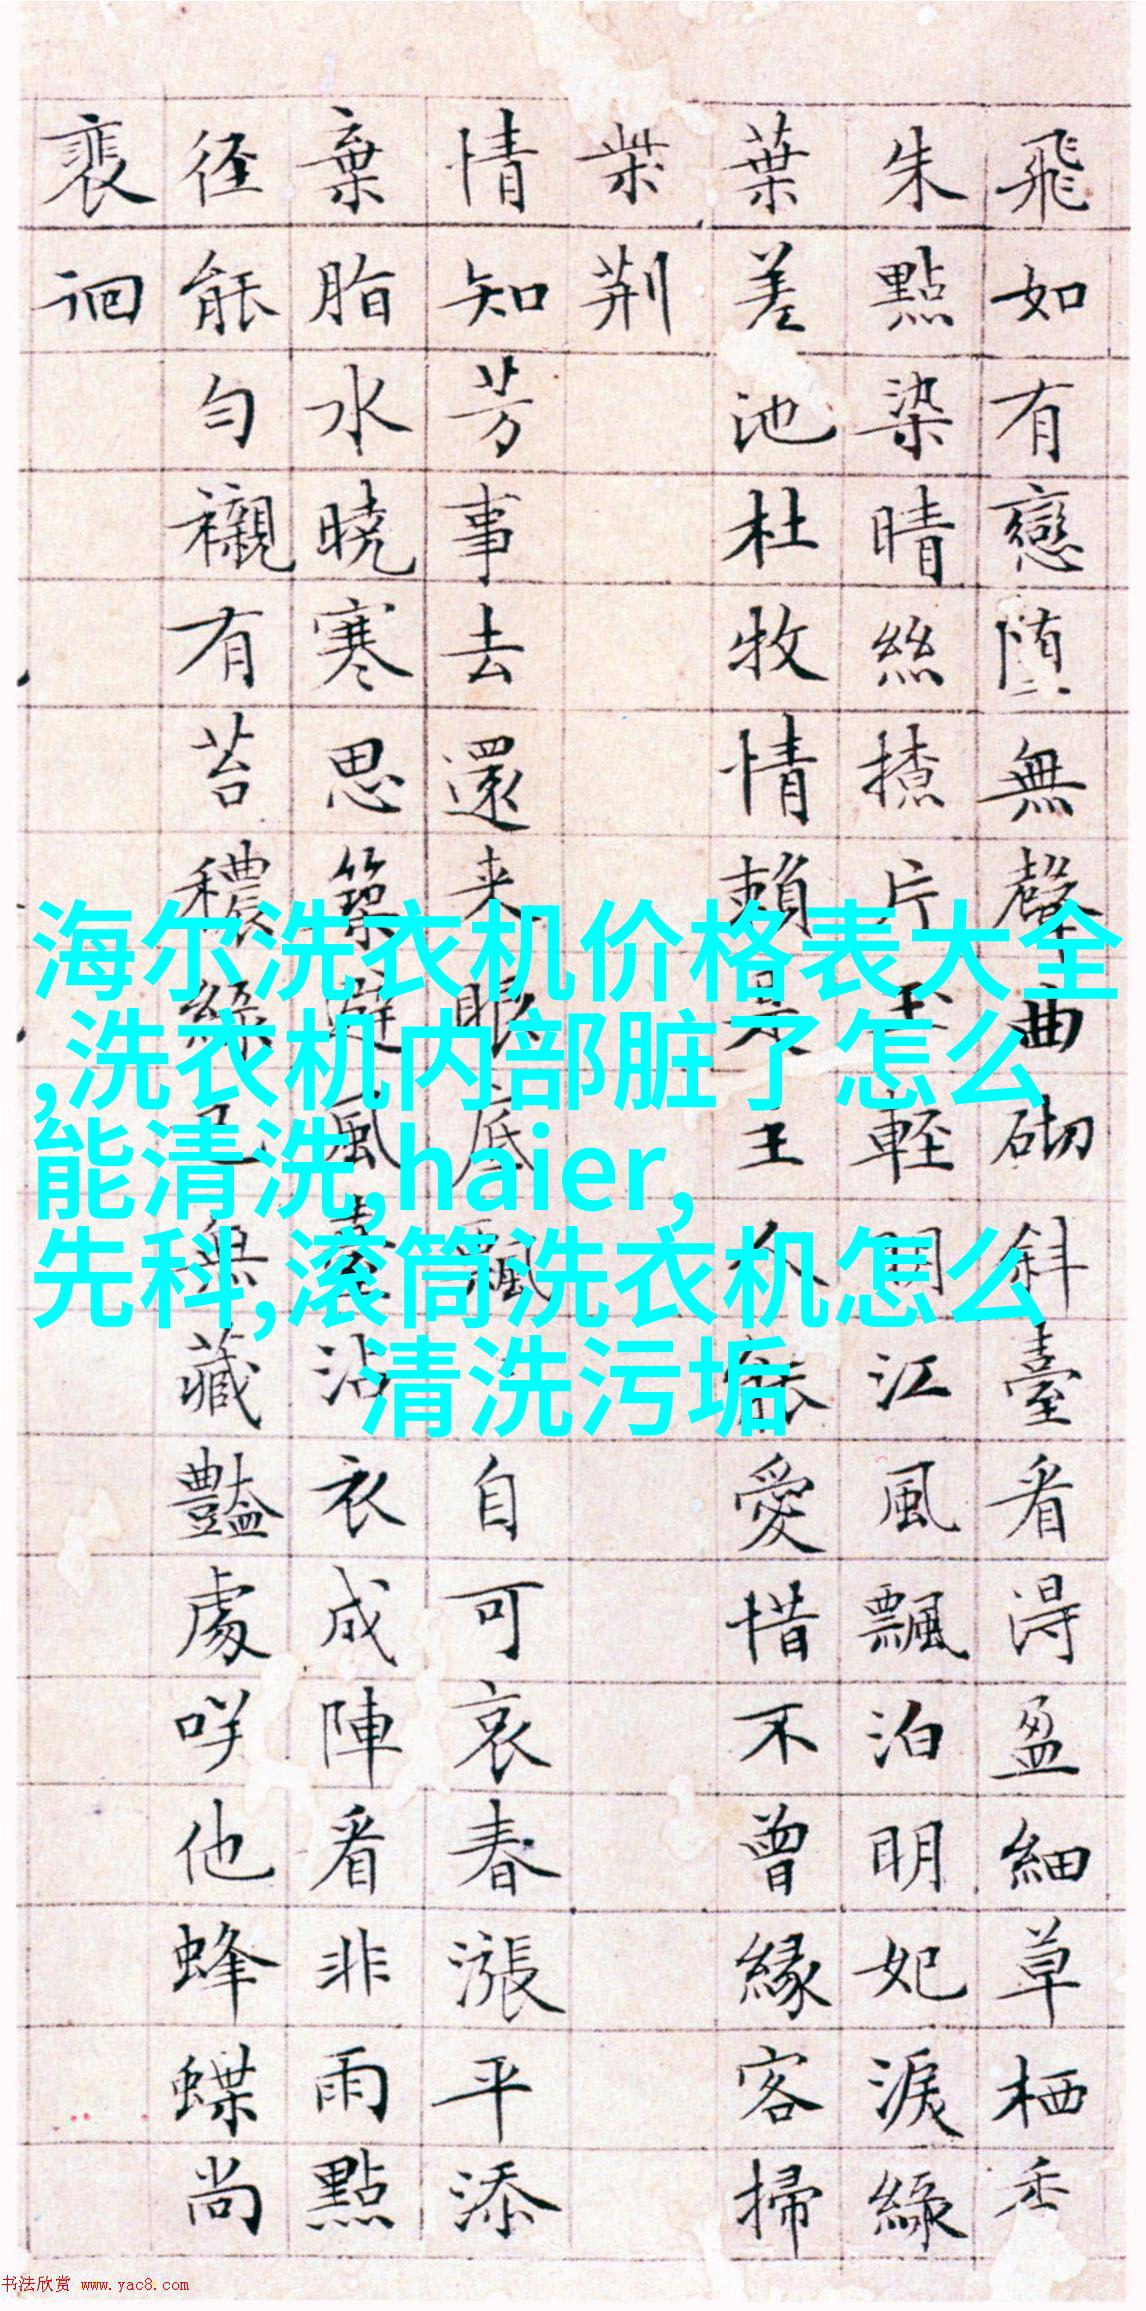 飛如有戀堕無聲曲砌斜臺看淂盈細草栖香
朱點染晴絲片輕明江風飄泊明妃淚綠
葉差池杜牧情賴是主人能愛惜不曾緣客掃
柴荆
情知芳事去還来眼底飄自可哀春漲平添
棄脂水曉寒思築避風臺沾衣成陣看非雨點
径能勻襯有苔穠綠已無藏豔處咲他蜂蝶尚
裵徊
海尔洗衣机价格表大全
,洗衣机内部脏了怎么
能清洗,haier,
先科,滚筒洗衣机怎么
清洗污垢
书法欣赏 www.yac8.com